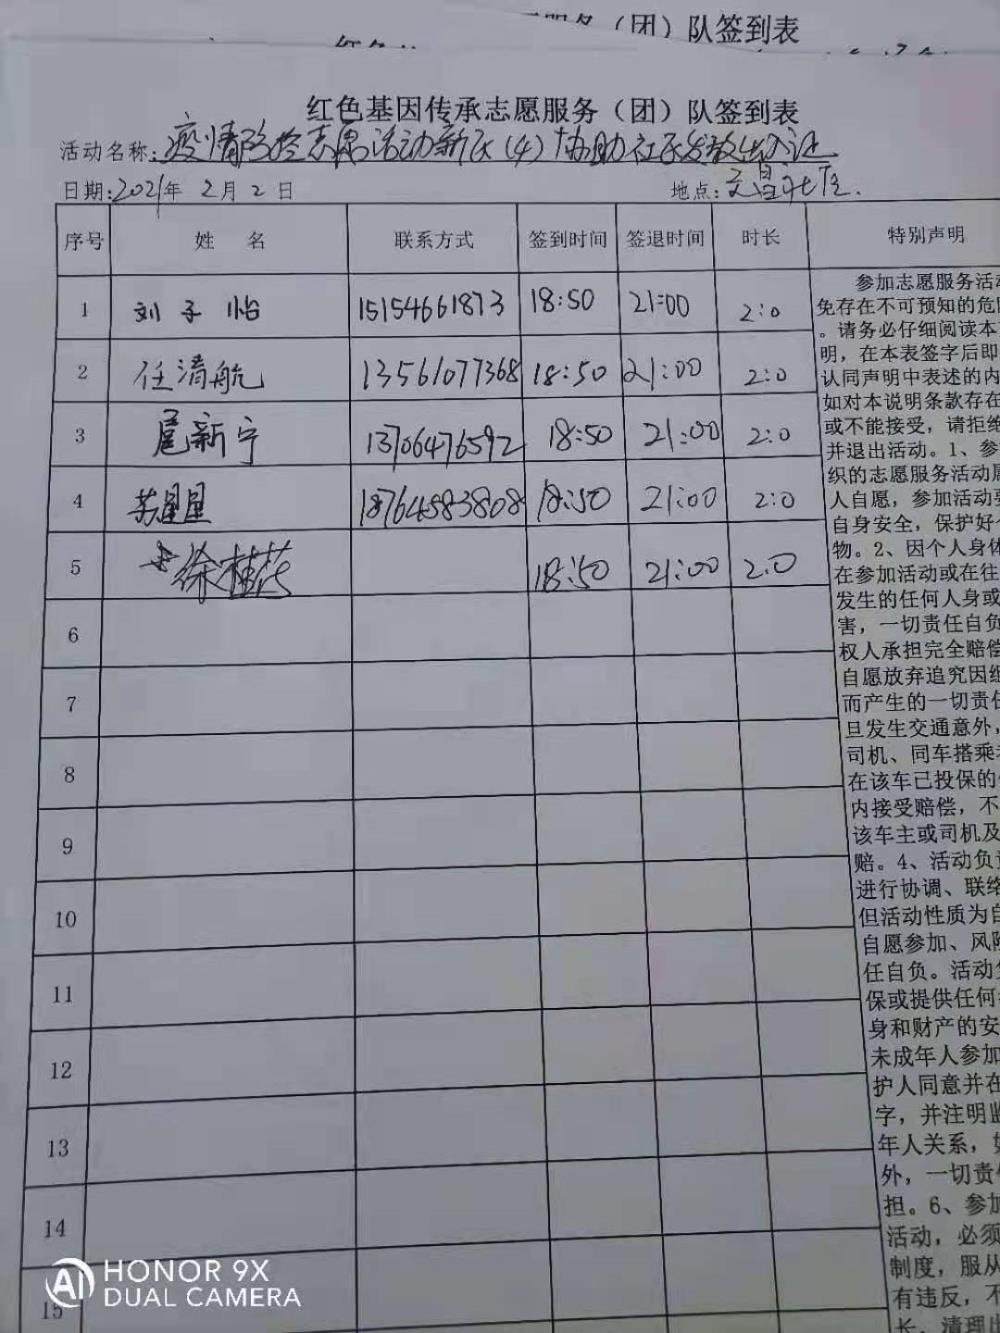 服务（团）队签到表
红色基因传承志愿服务（团）队签到表
活动名称：疫情防控志愿活动新区(4)协助社区发放出入证
日期:2021年 2月 2日 地点：文昌社区.
序号 姓 名 联系方式 签到时间 签退时间 时长 特别声明
1 刘子怡 15154661873 18:50 21:00 2:0
2 任清航 13561077368 18:50 21:00 2:0
3 扈新宁 13706476592 18:50 21:00 2:0
4 苏星星 18764583808 18:50 21:00 2:0
5 徐桂芬 18:50 21:00 2:0
6
7
8
9
10
11
12
13
14
15
参加志愿服务活动
免存在不可预知的危
。请务必仔细阅读本
明，在本表签字后即
认同声明中表述的内
如对本说明条款存在
或不能接受，请拒绝
并退出活动。1、参
织的志愿服务活动属
人自愿，参加活动要
自身安全，保护好个
物。2、因个人身体
在参加活动或在往
发生的任何人身或
害，一切责任自负
权人承担完全赔偿
自愿放弃追究因组
而产生的一切责任
旦发生交通意外，
司机、同车搭乘者
在该车已投保的
内接受赔偿，不
该车主或司机及
赔。4、活动负责
进行协调、联络
但活动性质为自
自愿参加、风险
任自负。活动
保或提供任何
身和财产的安
未成年人参加
护人同意并在
字，并注明监
年人关系，如
外，一切责任
担。6、参加
活动，必须
制度，服从
有违反，不
长、清理出
HONOR 9X
DUAL CAMERA